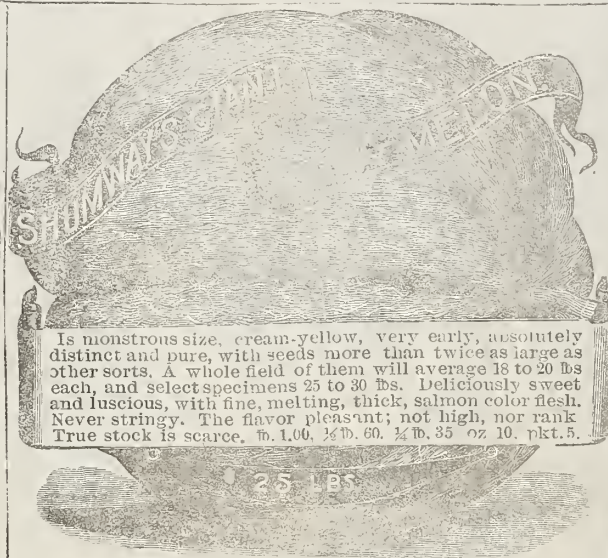 SHUMWAY'S GIANT MELON
Is monstrous size, cream-yellow, very early, absolutely
distinct and pure, with seeds more than twice as large as
other sorts. A whole field of them will average 18 to 20 lbs
each, and select specimens 25 to 30 lbs. Deliciously sweet
and luscious, with fine, melting, thick, salmon color flesh.
Never stringy. The flavor pleasant; not high, nor rank
True stock is scarce. lb. 1.00, ½ lb. 60. ¼ lb. 35 oz 10. pkt. 5.
25 LBS